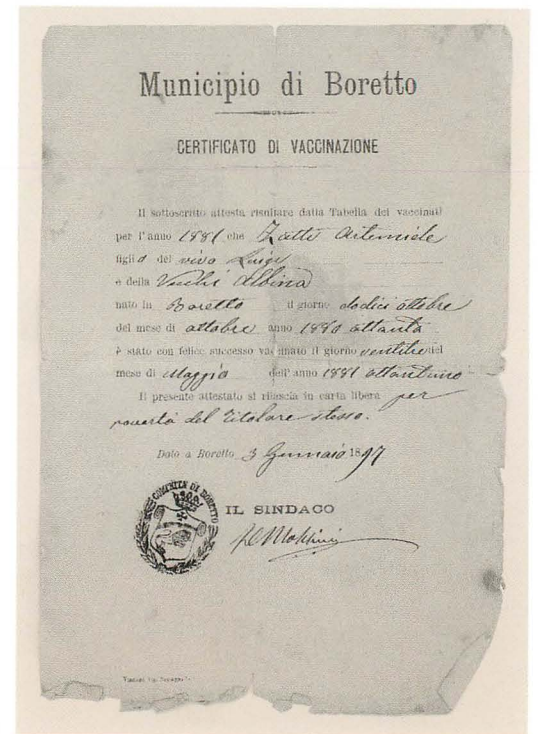 Municipio di Boretto
CERTIFICATO DI VACCINAZIONE
Il sottoscritto attesta risultare dalla Tabella dei vaccinati
per l'anno 1881 che Zatti Artemiele
figlio del vivo Luigi
e della Vecchi Albina
nato in Boretto il giorno dodici ottobre
del mese di ottobre anno 1880 ottanta
è stato con felice successo vaccinato il giorno ventitre del
mese di Maggio dell'anno 1881 ottantuno
Il presente attestato si rilascia in carta libera per
povertà del titolare stesso.
Dato a Boretto 3 Gennaio 1897
COMUNE DI BORETTO
IL SINDACO